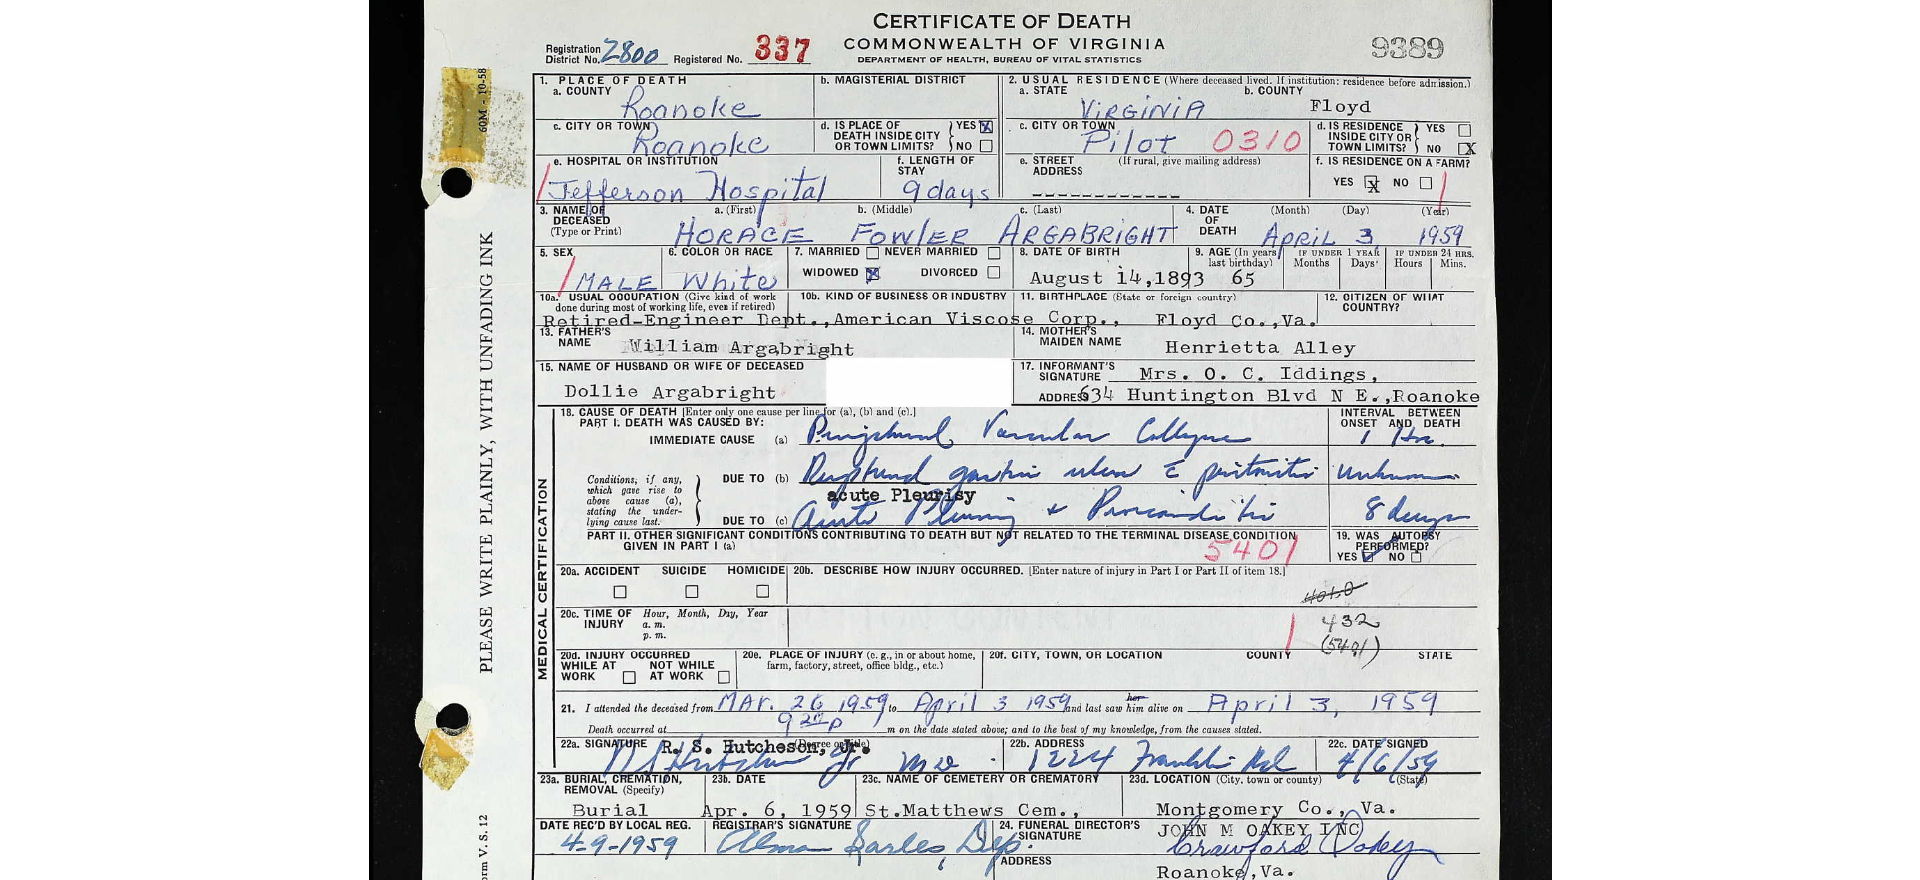 CERTIFICATE OF DEATH
COMMONWEALTH OF VIRGINIA
DEPARTMENT OF HEALTH, BUREAU OF VITAL STATISTICS
Registration District No. 2800 Registered No. 337
9389
60M. - 10-58
PLEASE WRITE PLAINLY, WITH UNFADING INK
1. PLACE OF DEATH
a. COUNTY Roanoke
b. MAGISTERIAL DISTRICT
2. USUAL RESIDENCE (Where deceased lived. If institution: residence before admission.)
a. STATE VIRGINIA b. COUNTY Floyd
c. CITY OR TOWN Roanoke
d. IS PLACE OF DEATH INSIDE CITY OR TOWN LIMITS? YES X NO
c. CITY OR TOWN Pilot 0310
d. IS RESIDENCE INSIDE CITY OR TOWN LIMITS? YES NO X
e. HOSPITAL OR INSTITUTION Jefferson Hospital
f. LENGTH OF STAY 9 days
e. STREET ADDRESS (If rural, give mailing address)
f. IS RESIDENCE ON A FARM? YES X NO
3. NAME OF DECEASED (Type or Print) a. (First) b. (Middle) c. (Last)
HORACE FOWLER ARGABRIGHT
4. DATE OF DEATH (Month) (Day) (Year)
APRIL 3 1959
5. SEX MALE
6. COLOR OR RACE White
7. MARRIED NEVER MARRIED
WIDOWED X DIVORCED
8. DATE OF BIRTH August 14,1893
9. AGE (In years last birthday) 65
IF UNDER 1 YEAR Months Days
IF UNDER 24 HRS. Hours Mins.
10a. USUAL OCCUPATION (Give kind of work done during most of working life, even if retired)
10b. KIND OF BUSINESS OR INDUSTRY
Retired-Engineer Dept.,American Viscose Corp.,
11. BIRTHPLACE (State or foreign country) Floyd Co.,Va.
12. CITIZEN OF WHAT COUNTRY?
13. FATHER'S NAME William Argabright
14. MOTHER'S MAIDEN NAME Henrietta Alley
15. NAME OF HUSBAND OR WIFE OF DECEASED
Dollie Argabright
17. INFORMANT'S SIGNATURE Mrs. O. C. Iddings,
ADDRESS 634 Huntington Blvd N E.,Roanoke
MEDICAL CERTIFICATION
18. CAUSE OF DEATH [Enter only one cause per line for (a), (b) and (c).]
PART I. DEATH WAS CAUSED BY:
INTERVAL BETWEEN ONSET AND DEATH
IMMEDIATE CAUSE (a) Peripheral Vascular Collapse 1 Hr.
Conditions, if any, which gave rise to above cause (a), stating the underlying cause last.
DUE TO (b) Ruptured gastric ulcer c peritonitis unknown
acute Pleurisy
DUE TO (c) Acute Pleurisy & Pericarditis 8 days
PART II. OTHER SIGNIFICANT CONDITIONS CONTRIBUTING TO DEATH BUT NOT RELATED TO THE TERMINAL DISEASE CONDITION GIVEN IN PART I (a)
5401
19. WAS AUTOPSY PERFORMED? YES ✓ NO
20a. ACCIDENT SUICIDE HOMICIDE
20b. DESCRIBE HOW INJURY OCCURRED. [Enter nature of injury in Part I or Part II of item 18.]
20c. TIME OF INJURY Hour, Month, Day, Year
a. m.
p. m.
432
(5401)
20d. INJURY OCCURRED
WHILE AT WORK NOT WHILE AT WORK
20e. PLACE OF INJURY (e. g., in or about home, farm, factory, street, office bldg., etc.)
20f. CITY, TOWN, OR LOCATION COUNTY STATE
21. I attended the deceased from MAR. 26 1959 to April 3 1959 and last saw her him alive on April 3, 1959
Death occurred at m on the date stated above; and to the best of my knowledge, from the causes stated.
22a. SIGNATURE (Degree or title) R. S. Hutcheson, Jr.
22b. ADDRESS 1224 Franklin Rd
22c. DATE SIGNED 4/6/59
23a. BURIAL, CREMATION, REMOVAL (Specify) Burial
23b. DATE Apr. 6, 1959
23c. NAME OF CEMETERY OR CREMATORY St.Matthews Cem.,
23d. LOCATION (City, town or county) (State) Montgomery Co., Va.
DATE REC'D BY LOCAL REG. 4-9-1959
REGISTRAR'S SIGNATURE Alma Sarles, Dep.
24. FUNERAL DIRECTOR'S SIGNATURE JOHN M OAKEY INC
Crawford Oakey
ADDRESS Roanoke,Va.
orm V. S. 12